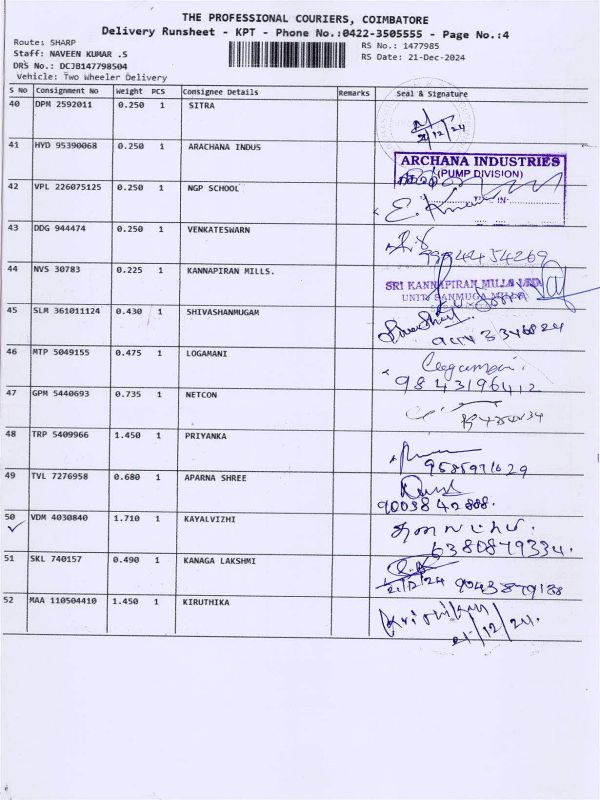 THE PROFESSIONAL COURIERS, COIMBATORE
Delivery Runsheet - KPT - Phone No.:0422-3505555 - Page No.:4
Route: SHARP RS No.: 1477985
Staff: NAVEEN KUMAR .S RS Date: 21-Dec-2024
DRS No.: DCJB147798504
Vehicle: Two Wheeler Delivery
S No Consignment No Weight PCS Consignee Details Remarks Seal & Signature
40 DPM 2592011 0.250 1 SITRA
21/12/24
41 HYD 95390068 0.250 1 ARACHANA INDUS
ARCHANA INDUSTRIES
(PUMP DIVISION)
42 VPL 226075125 0.250 1 NGP SCHOOL
43 DDG 944474 0.250 1 VENKATESWARN
9994454269
44 NVS 30783 0.225 1 KANNAPIRAN MILLS.
SRI KANNAPIRAN MILLS LTD
UNIT: SANMUGA MILLS
45 SLM 361011124 0.430 1 SHIVASHANMUGAM
46 MTP 5049155 0.475 1 LOGAMANI
Logamani.
9843196412
47 GPM 5440693 0.735 1 NETCON
48 TRP 5409966 1.450 1 PRIYANKA
9585971629
49 TVL 7276958 0.680 1 APARNA SHREE
9003842888.
50 VDM 4030840 1.710 1 KAYALVIZHI
6380879334.
51 SKL 740157 0.490 1 KANAGA LAKSHMI
21/12/24 9043879188
52 MAA 110504410 1.450 1 KIRUTHIKA
21/12/24.